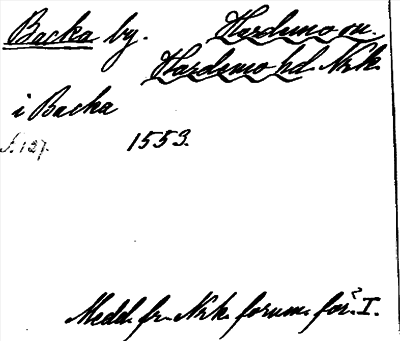 Backa by. Hardemo sn.
Hardemo hd. Nrk.
i Backa
s. 127. 1553.
Medd. fr. Nrk. fornm. för. I.